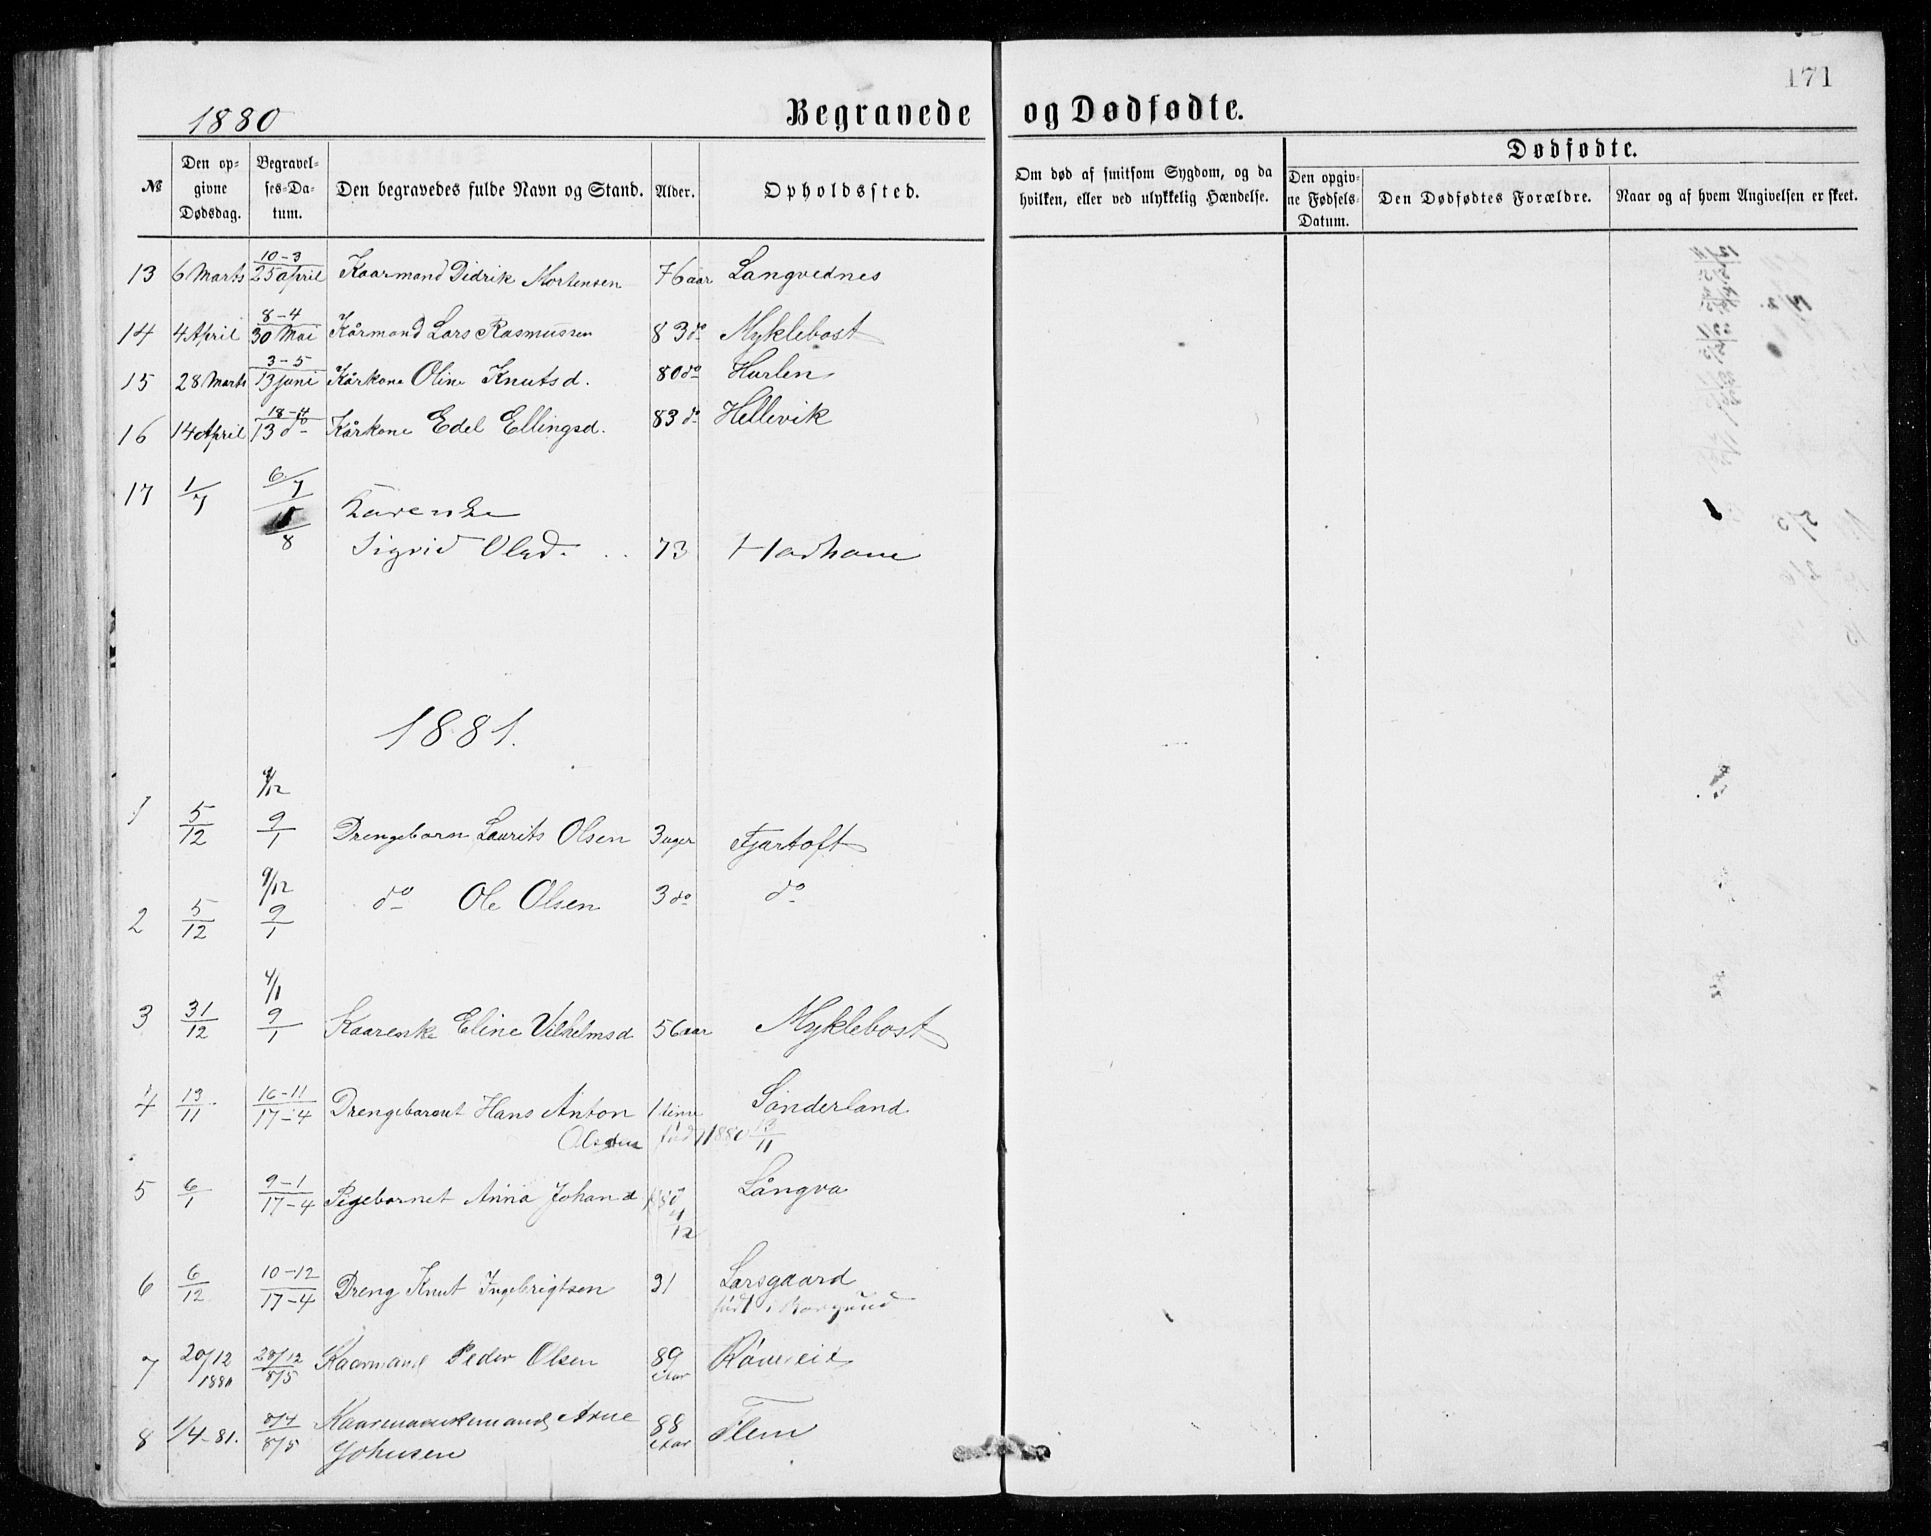 171
1880 Begravede og Dødfødte.
№ Den opgivne Dødsdag. Begravelses-Datum. Den begravedes fulde Navn og Stand. Alder. Opholdssted. Om død af smitsom Sygdom, og da hvilken, eller ved ulykkelig Hændelse. Dødfødte. Den opgivne Fødsels-Datum. Den Dødfødtes Forældre. Naar og af hvem Angivelsen er skeet.
10-3
13 6 Marts 25 april Kaarmand Didrik Mortensen 76 aar Langvednes
8-4
14 4 April 30 Mai Kårmand Lars Rasmussen 83 do Myklebost
3-5
15 28 Marts 13 juni Kårkone Oline Knutsd. 80 do Harlen
18-4
16 14 April 13 do Kårkone Edel Ellingsd. 83 do Hellevik
17 1/7 6/7 Kårenke
8 Sigrid Olsd. 73 Hadhane
1881.
9/12
1 5/12 9/1 Drengebarn Laurits Olsen 3 uger Fjærtoft
9/12
2 5/12 9/1 do Ole Olsen 3 do do
4/1
3 31/12 9/1 Kaarenke Eline Vilhelmsd 56 aar Myklebost
4 13/11 16-11 17-4 Drengebarnet Hans Anton 1 time Sønderland
Olsen født 1880 13/11
5 6/1 9-1 17-4 Pigebarnet Anna Johansd Långva
11/12
6 6/12 10-12 17-4 Dreng Knut Ingebrigtsen 21 Larsgaard
født i Borgund
7 20/12 1880 28/12 8/5 Kaarmand Peder Olsen 89 Aar
8 1/4-81. 8/4 8/5 Arne 88 Aar Flem
Johnsen